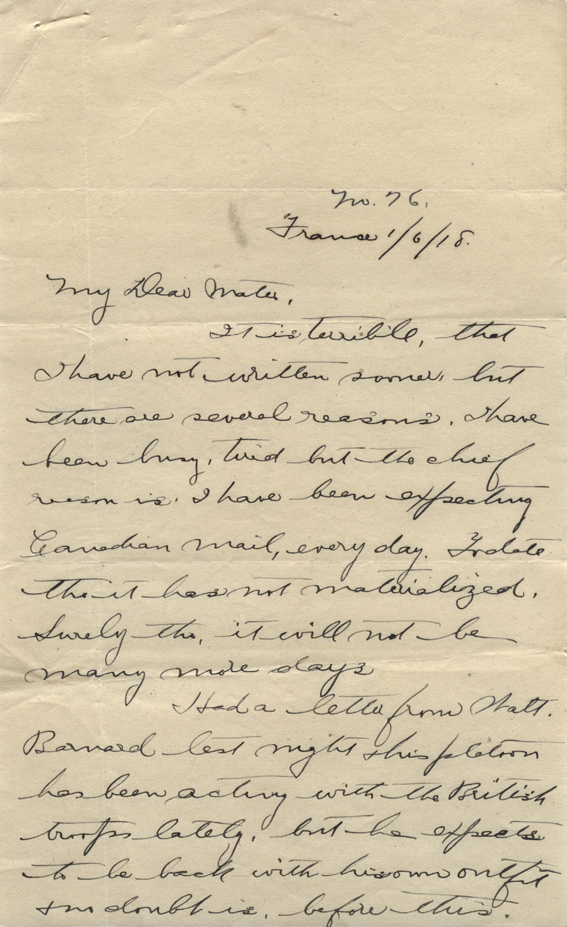 No. 76.
France 1/6/18.
My Dear Mater,
It is terrible, that
I have not written sooner, but
there are several reasons. I have
been busy, tired but the chief
reason is. I have been expecting
Canadian mail, every day. To date
tho it has not materialized.
Surely tho, it will not be
many more days
Had a letter from Walt.
Barnard last night & his platoon
has been acting with the British
troops lately, but he expects
to be back with his own outfit
& no doubt is, before this.